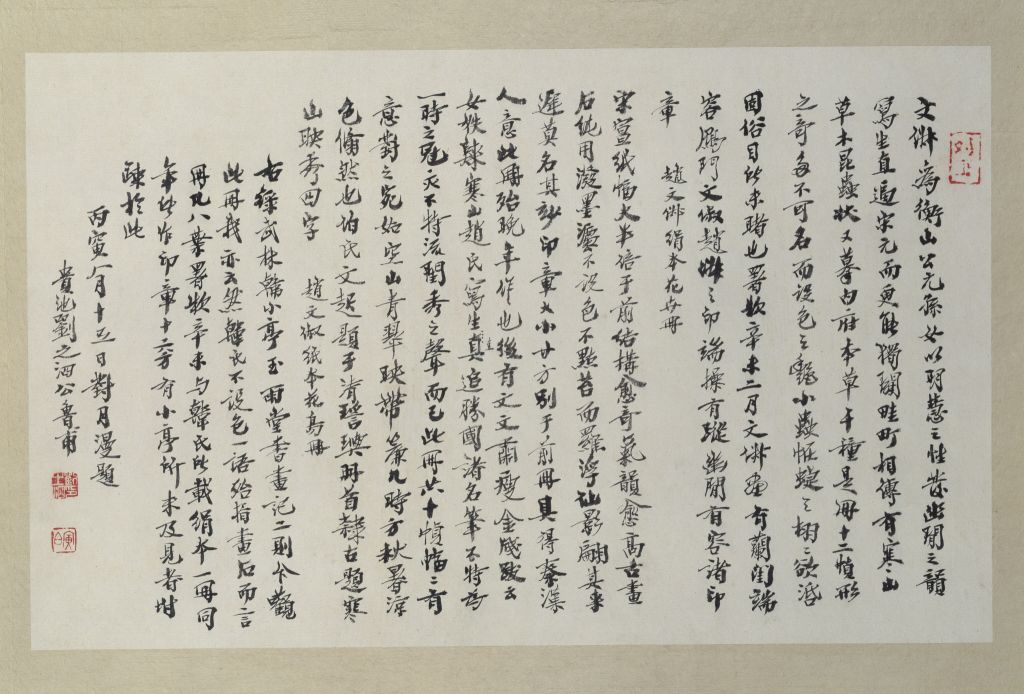 文俶為衡山公元孫女以明慧之性發幽閒之韻
寫生直逼宋元而更能獨闢畦町相傳有寒山
草木昆蟲狀又摹內府本草千種是冊十二幀形
之奇多不可名而設色之艷小蟲怪蜨之栩栩欲活
固俗目所未睹也署款辛未二月文俶有蘭閨端
容雁門文俶趙俶之印端操有蹤幽閒有容諸印
章
趙文俶絹本花卉冊
宋宣紙幅大半倍于前結構愈奇氣韻愈高古畫
石純用潑墨瀋不設色不點苔而羅浮仙影翩其來
遲莫名其妙印章大小廿方別于前冊真得秦漢
人意此冊殆晚年作也後有文文肅瘦金牋跋云
女姪隸寒山趙氏寫生真追勝國諸名筆不特為
一時之冠亦不特流閨秀之聲而已此冊共十幀幅幅有
意對之宛如空山青翠映帶簾几時方秋暑涼
色翛然也伯氏文起題于清瑤嶼冊首隸古題寒
山映秀四字
趙文俶紙本花鳥冊
右錄武林韓小亭玉雨堂書畫記二則今觀
此冊我亦云然韓氏不設色一語殆指畫石而言
冊凡八葉署款辛未與韓氏所載絹本一冊同
年所作印章十二方有小亭所未及見者附
疏於此
丙寅八月十五日對月漫題
貴池劉之泗公魯甫